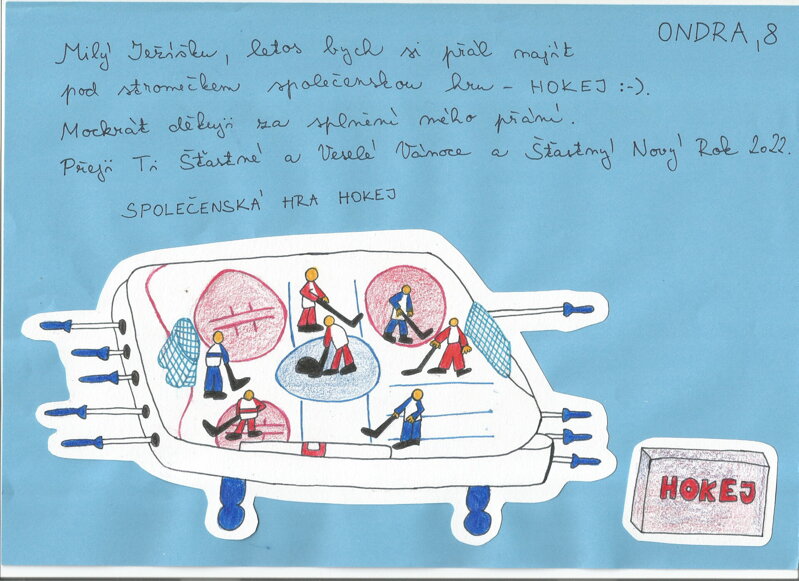 ONDRA, 8
Milý Ježíšku, letos bych si přál najít
pod stromečkem společenskou hru - HOKEJ :-).
Mockrát děkuji za splnění mého přání.
Přeji Ti Šťastné a Veselé Vánoce a Šťastný Nový Rok 2022.
SPOLEČENSKÁ HRA HOKEJ
HOKEJ